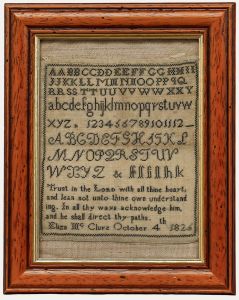 AABBCCDDEEFFGGHHII
JJKKLLMMNNOOPPQ
RRSSTTUUVVWWXXY
abcdefghijklmnopqrstuvw
xyz. 123456789101112
ABCDEFGHIJKL
MNOPQRSTUV
WXYZ &
Trust in the Lord with all thine heart,
and lean not unto thine own understand
ing. In all thy ways acknowledge him,
and he shall direct thy paths.
Eliza Mc Clure October 4th 182